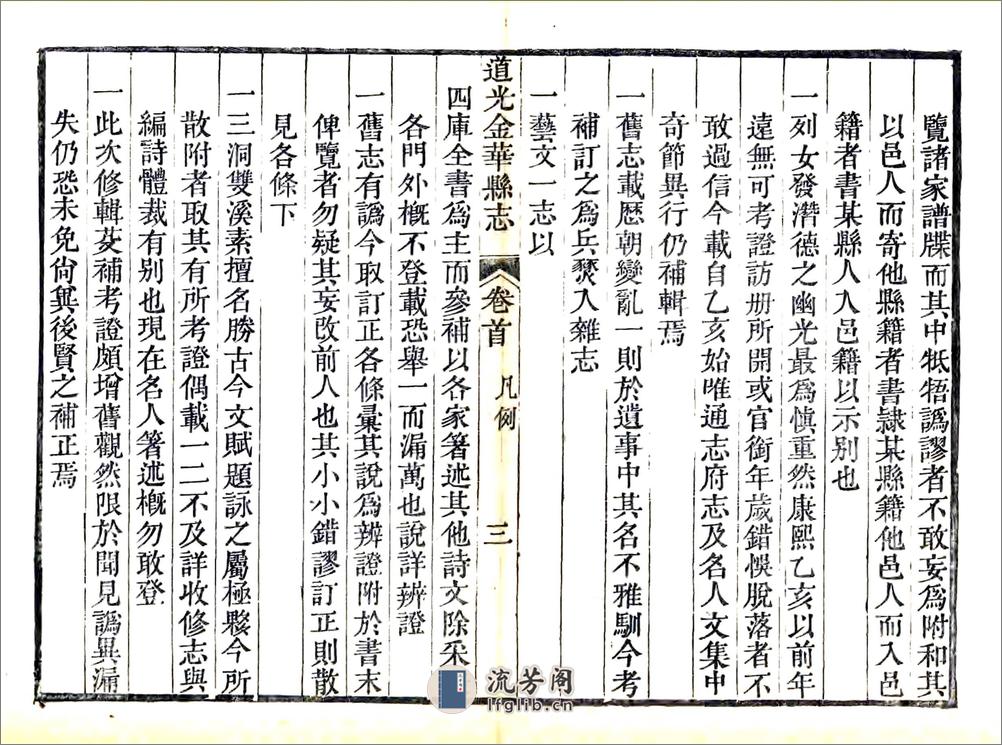 覽諸家譜牒而其中牴牾譌謬者不敢妄爲附和其
以邑人而寄他縣籍者書隷某縣籍他邑人而入邑
籍者書某縣人入邑籍以示别也
一列女發濳德之幽光最爲慎重然康熙乙亥以前年
遠無可考證訪册所開或官銜年歲錯悞脫落者不
敢過信今載自乙亥始唯通志府志及名人文集中
奇節異行仍補輯焉
一舊志載歴朝變亂一則於遺事中其名不雅馴今考
補訂之爲兵燹入雜志
一藝文一志以
道光金華縣志 卷首 凡例 三
四庫全書爲主而參補以各家著述其他詩文除采
各門外槪不登載恐舉一而漏萬也說詳辨證
一舊志有譌今取訂正各條彙其說爲辨證附於書末
俾覽者勿疑其妄改前人也其小小錯謬訂正則散
見各條下
一三洞雙溪素擅名勝古今文賦題詠之屬極夥今所
散附者取其有所考證偶載一二不及詳收修志與
編詩體裁有别也現在名人著述槪勿敢登
一此次修輯芟補考證頗增舊觀然限於聞見譌異漏
失仍恐未免尙兾後賢之補正焉
流芳阁
lfglib.cn